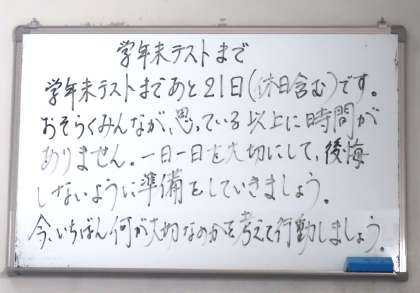 学年末テストまで
学年末テストまであと21日(休日含む)です。
おそらくみんなが思っている以上に時間が
ありません。一日一日を大切にして、後悔
しないように準備をしていきましょう。
今、いちばん何が大切なのかを考えて行動しましょう。